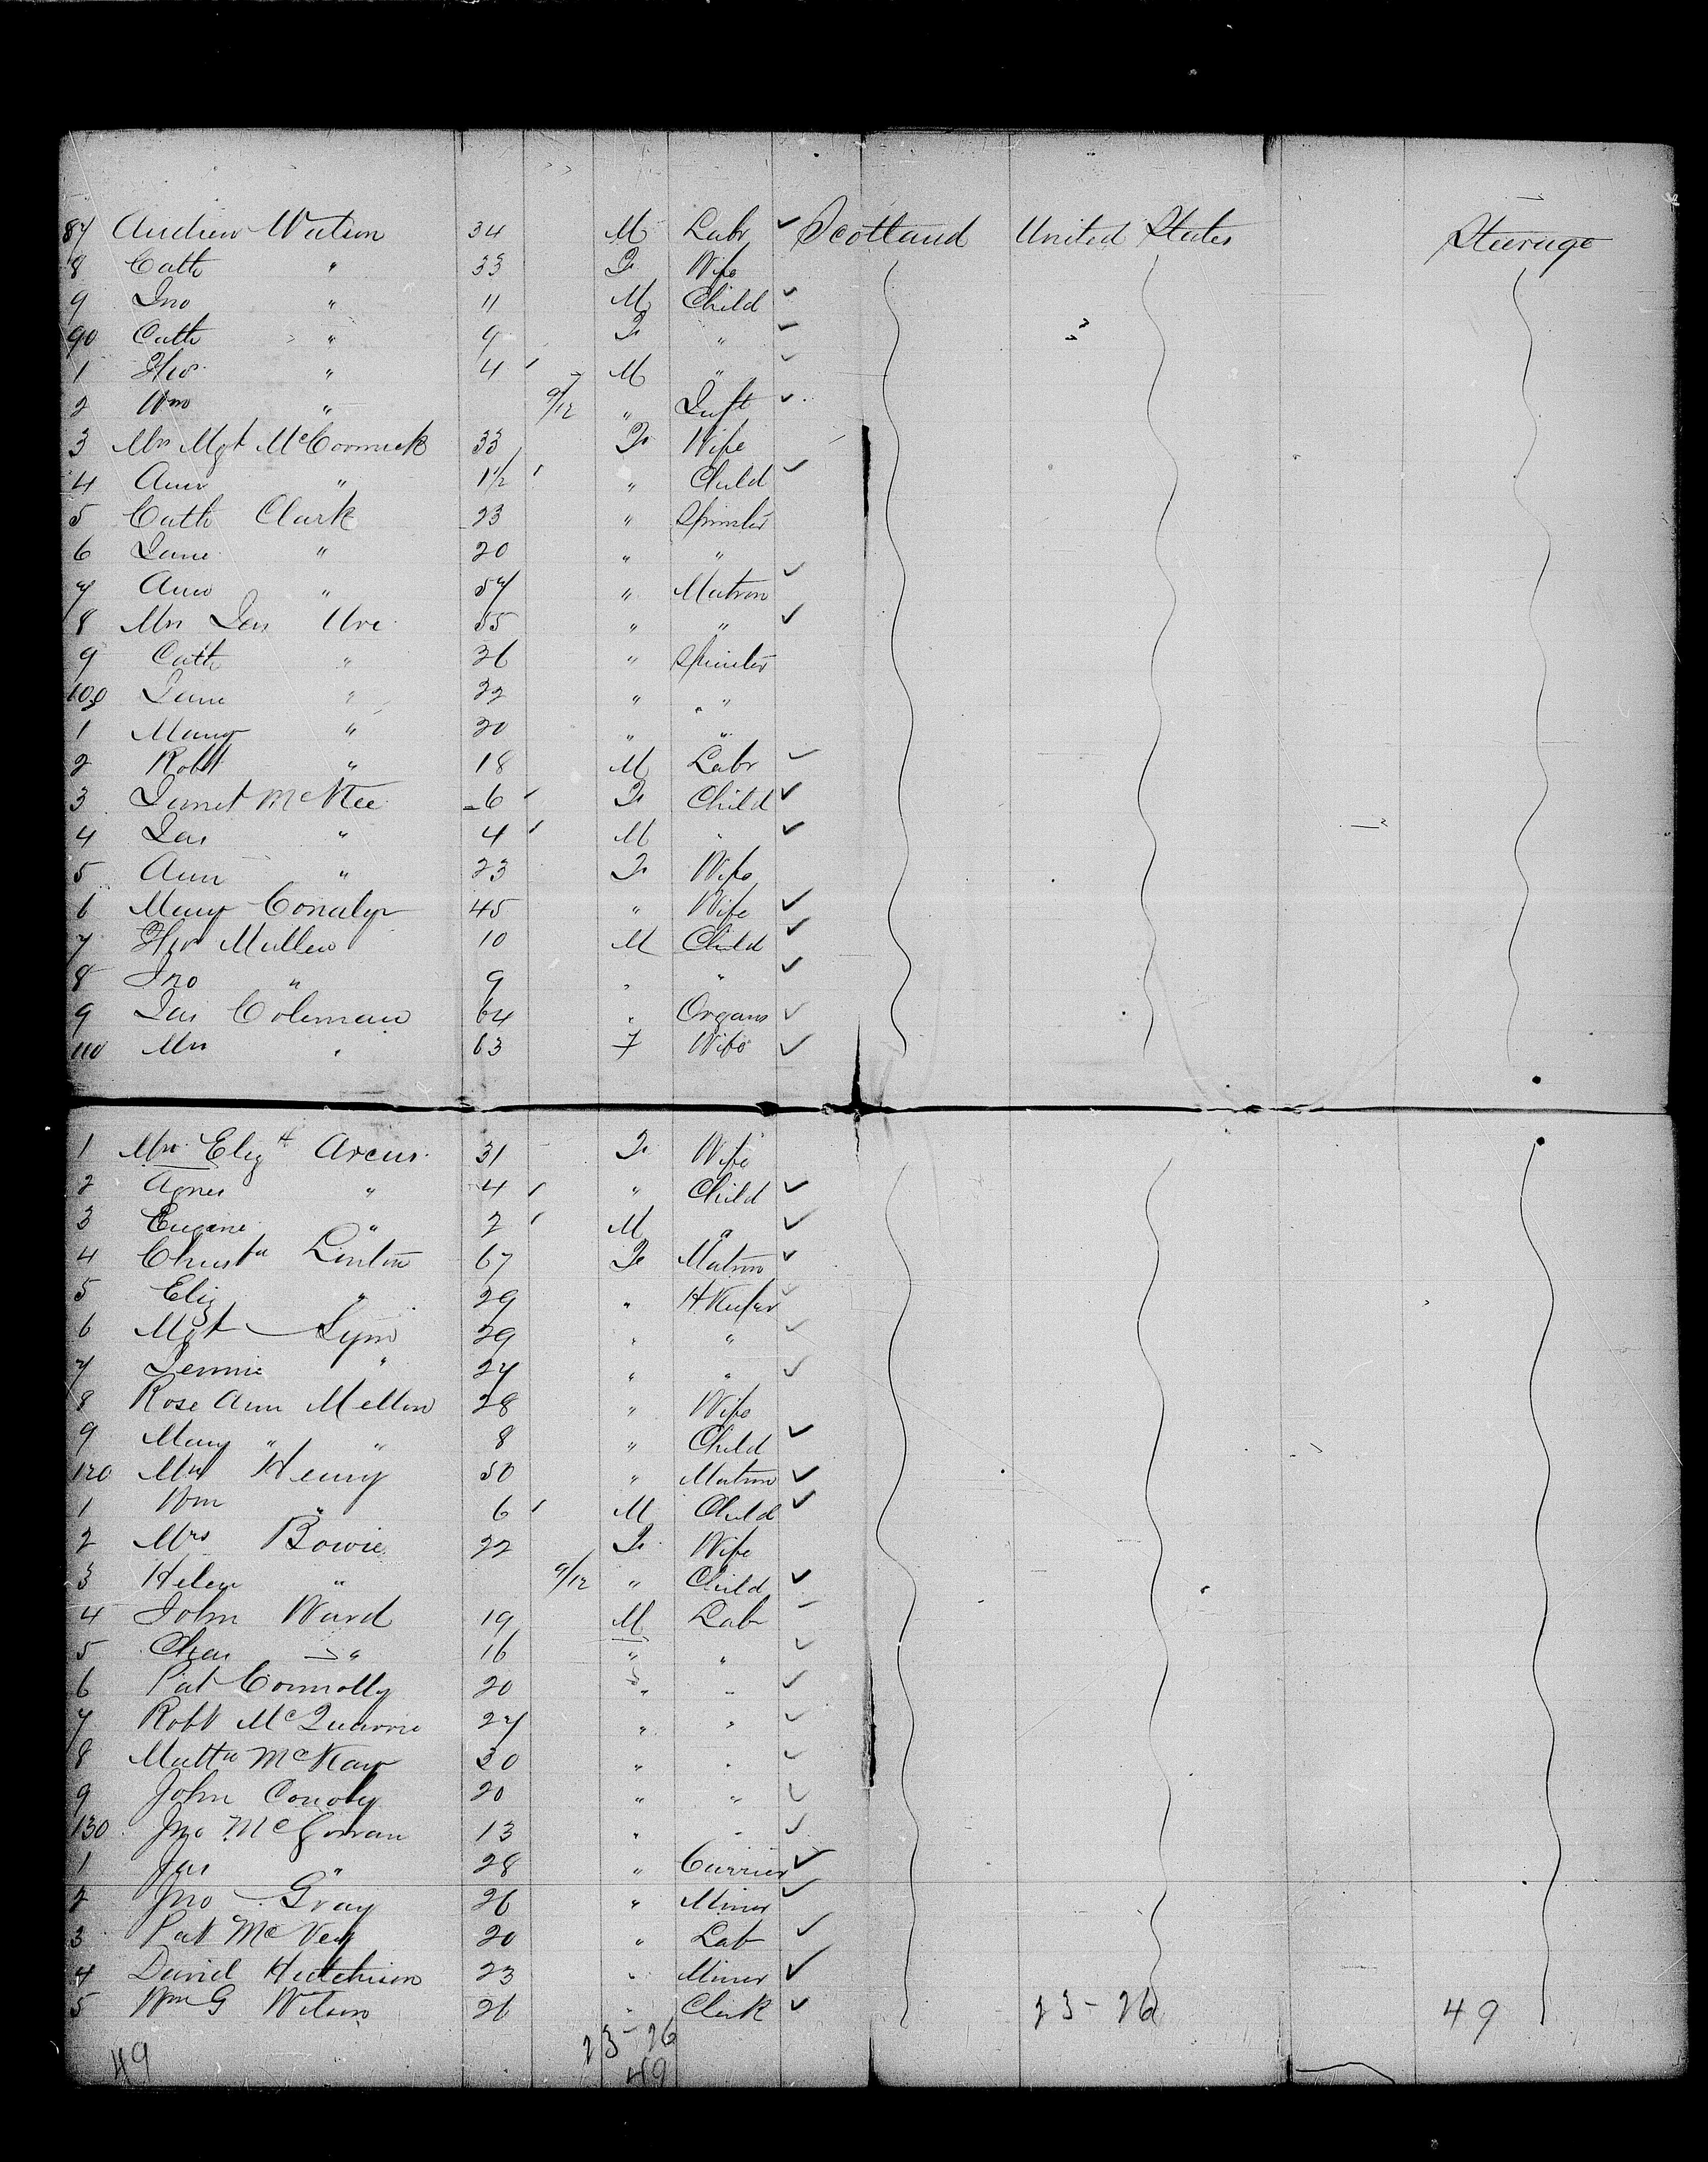 87 Andrew Watson 34 M Labr ✓ Scotland United States Steerage
8 Cath " 33 F Wife
9 Jno " 11 M Child ✓
90 Cath " 9 F " ✓
1 " 4 M " ✓
2 Wm " 9/12 " Inft ✓
3 Mrs Mgt McCormick 33 F Wife
4 Ann " 1½ " Child ✓
5 Cath Clark 23 " Spinster
6 Jane " 20 " "
7 Ann " 57 " Matron ✓
8 Mrs Jas Ure 55 " " ✓
9 Cath " 26 " Spinster
100 Jane " 22 " "
1 Mary " 20 " "
2 Robt " 18 M Labr ✓
3 Janet McKee 6 F Child ✓
4 Jas " 4 M " ✓
5 Ann " 23 F Wife
6 Mary 45 " Wife ✓
7 Mullen 10 M Child ✓
8 Jno " 9 " " ✓
9 Jas Coleman 64 " ✓
110 Mrs " 63 F Wife ✓
1 Mrs Eliz Arcus 31 F Wife
2 Agnes " 4 " Child ✓
3 Eugene " 2 M " ✓
4 Linton 67 F Matron ✓
5 Eliz " 29 " H Keeper ✓
6 Mgt Sym 29 " " ✓
7 Jennie " 27 " " ✓
8 Rose Ann Mellon 28 " Wife
9 Mary " " 8 " Child ✓
120 Mrs Henry 50 " Matron ✓
1 Wm " 6 M Child ✓
2 Mrs Bowie 22 F Wife
3 Helen " 9/12 " Child ✓
4 John Ward 19 M Lab
5 Chas " 16 " " ✓
6 Pat Connolly 20 " " ✓
7 Robt McQuarrie 27 " " ✓
8 McKay 30 " " ✓
9 John Conoly 20 " " ✓
130 Jno McGowan 13 " " ✓
1 Jas " 28 " Currier ✓
2 Jno Gray 26 " Miner ✓
3 Pat McVey 20 " Lab ✓
4 David Hutchison 23 " Miner ✓
5 Wm G Wilson 26 " Clerk ✓ 23-26 49
49 23-26
49